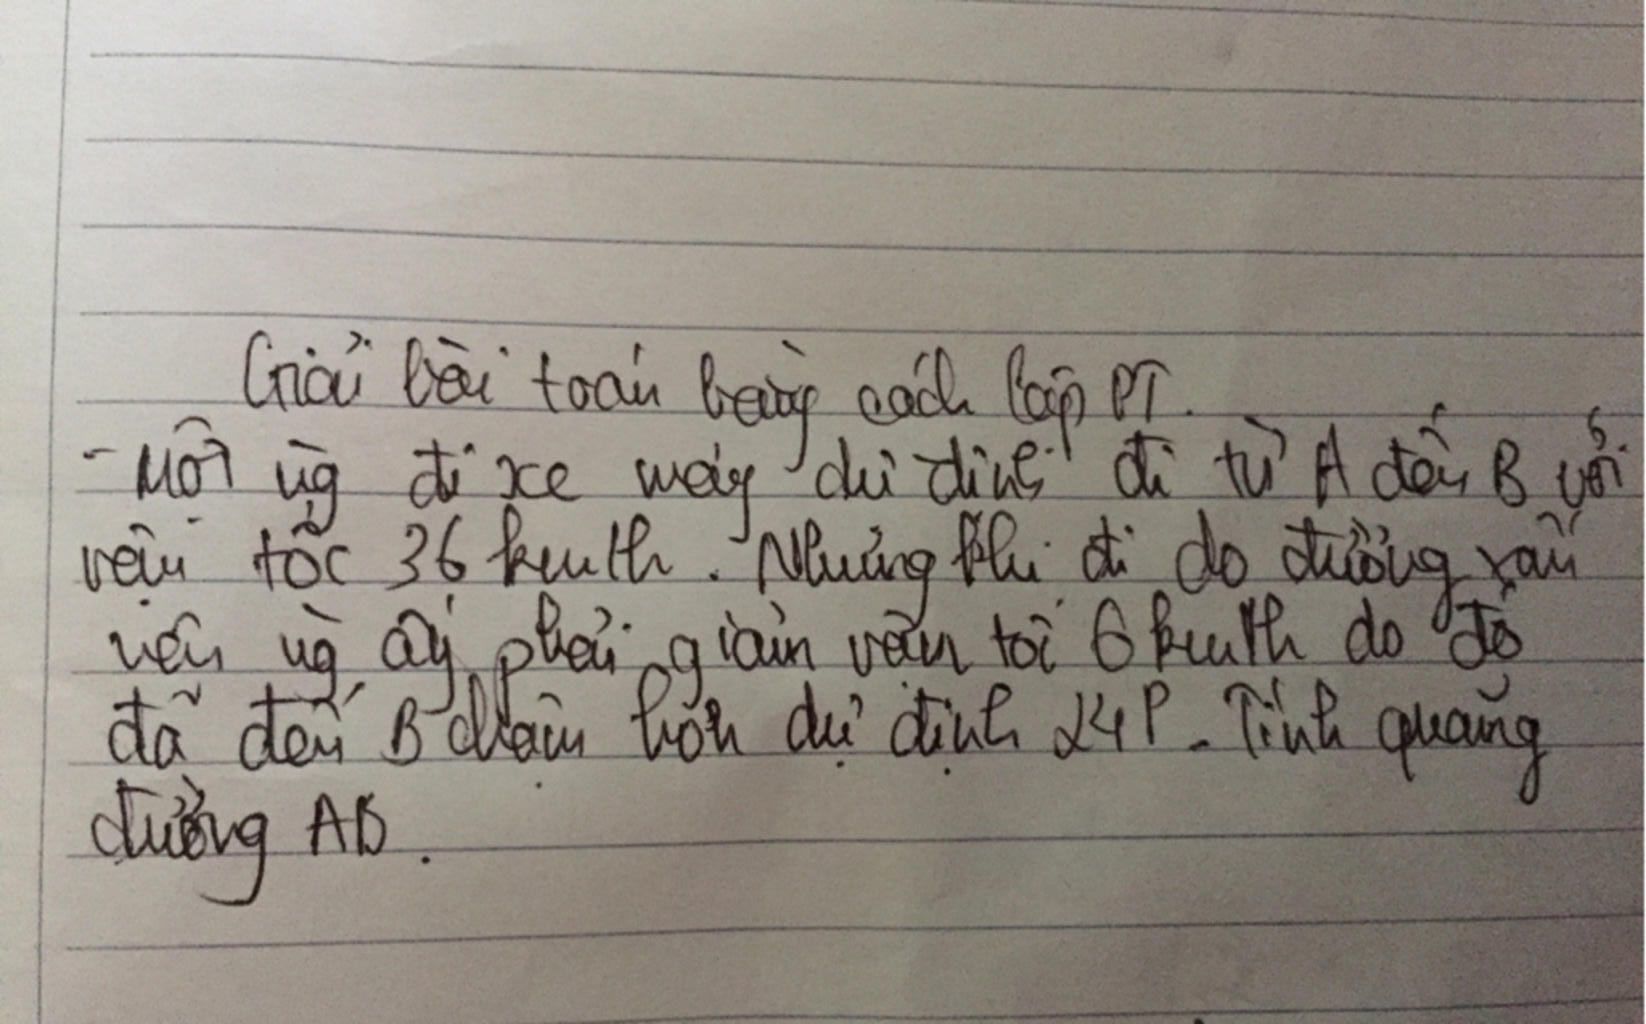 Giải bài toán bằng cách lập PT.
- Một ng đi xe máy dự định đi từ A đến B với
vận tốc 36 km/h. Nhưng khi đi do đường xấu
nên ng ấy phải giảm vận tốc 6 km/h do đó
đã đến B chậm hơn dự định 24P. Tính quãng
đường AB.